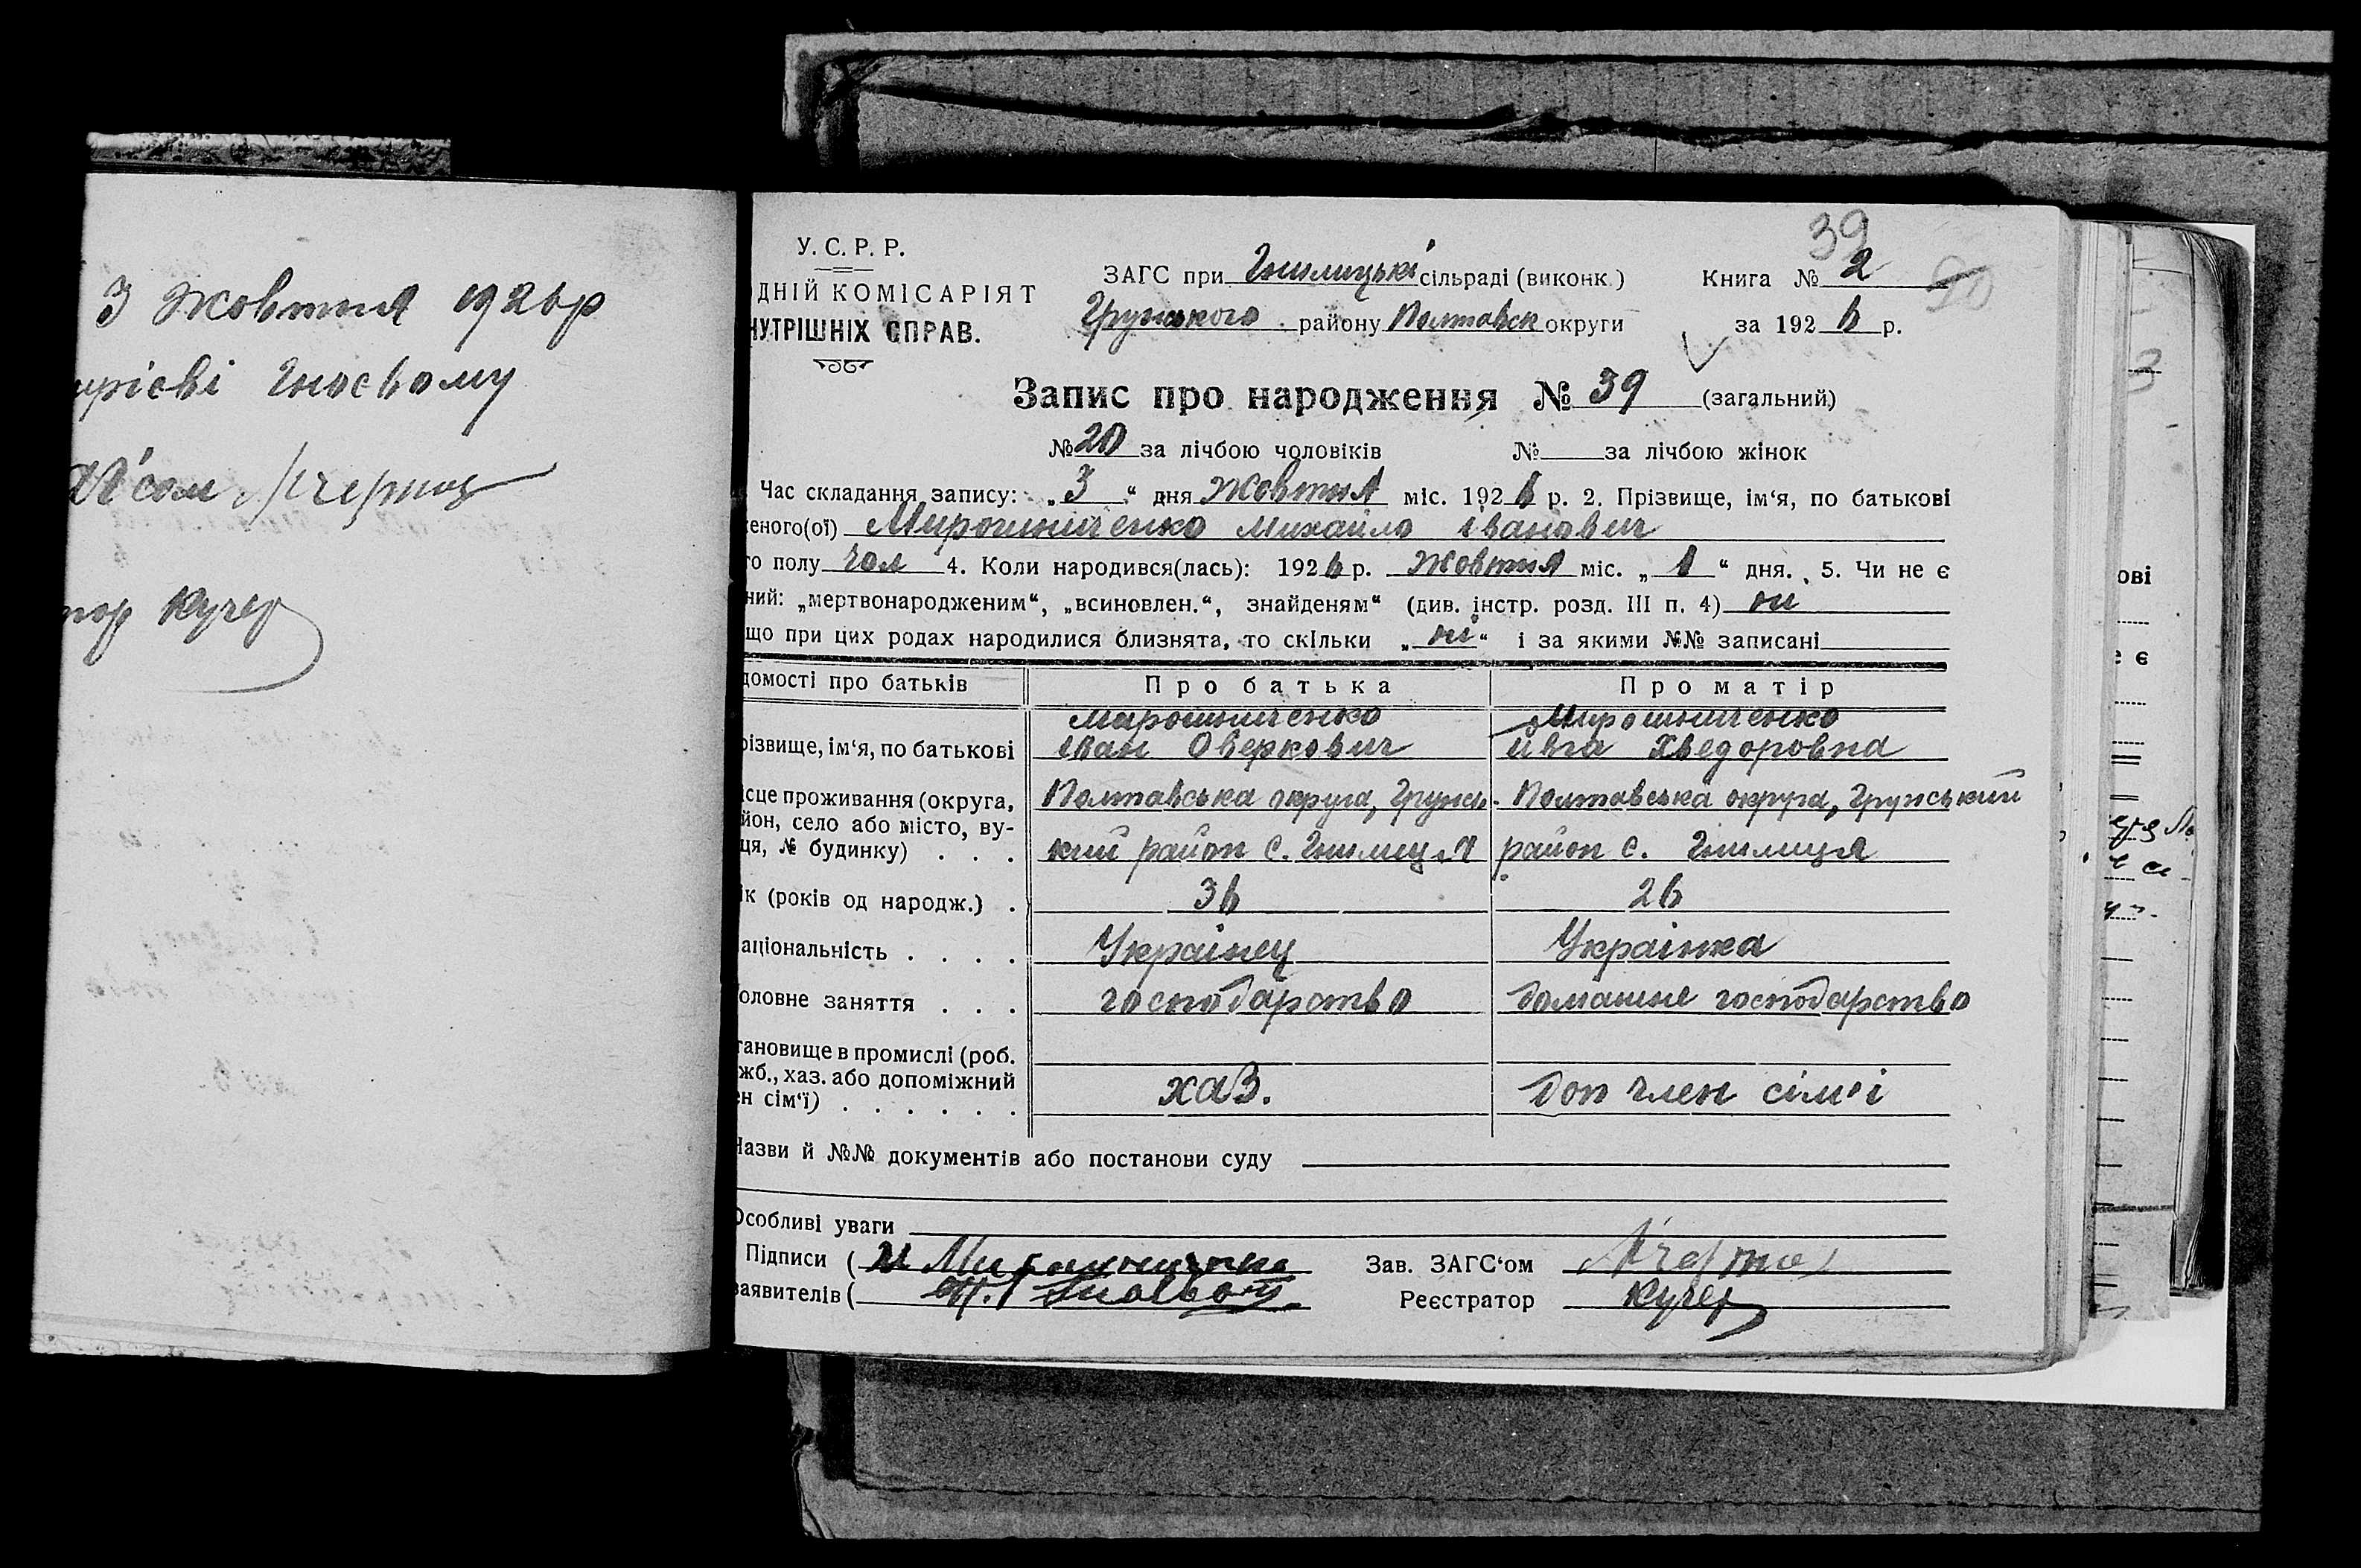 3 Жовтня 1926р
Гноєвому
Кучер
У. С. Р. Р.
ДНІЙ КОМІСАРІЯТ
НУТРІШНІХ СПРАВ.
39
ЗАГС при Гнилицькі сільраді (виконк.) Книга № 2
Грунського району Полтавськ округи за 1926 р.
Запис про народження № 39 (загальний)
№ 20 за лічбою чоловіків № за лічбою жінок
Час складання запису: „3“ дня Жовтня міс. 1926 р. 2. Прізвище, ім‘я, по батькові
еного(ої) Мирошниченко Михайло Іванович
го полу чол 4. Коли народився(лась): 1926 р. Жовтня міс. „1“ дня. 5. Чи не є
ний: „мертвонародженим“, „всиновлен.“, знайденям“ (див. інстр. розд. III п. 4) ні
що при цих родах народилися близнята, то скільки „ні“ і за якими №№ записані
домості про батьків Про батька Про матір
Мирошниченко Мирошниченко
різвище, ім‘я, по батькові Іван Оверкович Ивга Хведоровна
ісце проживання (округа, Полтавська округа, Грунсь- Полтавська округа, Грунський
йон, село або місто, ву-
ця, № будинку) . . . кий район с. Гнилиця район с. Гнилиця
ік (років од народж.) . 36 26
аціональність . . . . Українец Українка
оловне заняття . . . господарство домашне господарство
тановище в промислі (роб.
жб., хаз. або допоміжний хаз. доп член сім'і
ен сім‘ї) . . . . . .
Назви й №№ документів або постанови суду
Особливі уваги
Підписи ( И Мирошниченко Зав. ЗАГС‘ом
заявителів ( Реєстратор Кучер
ові
е є